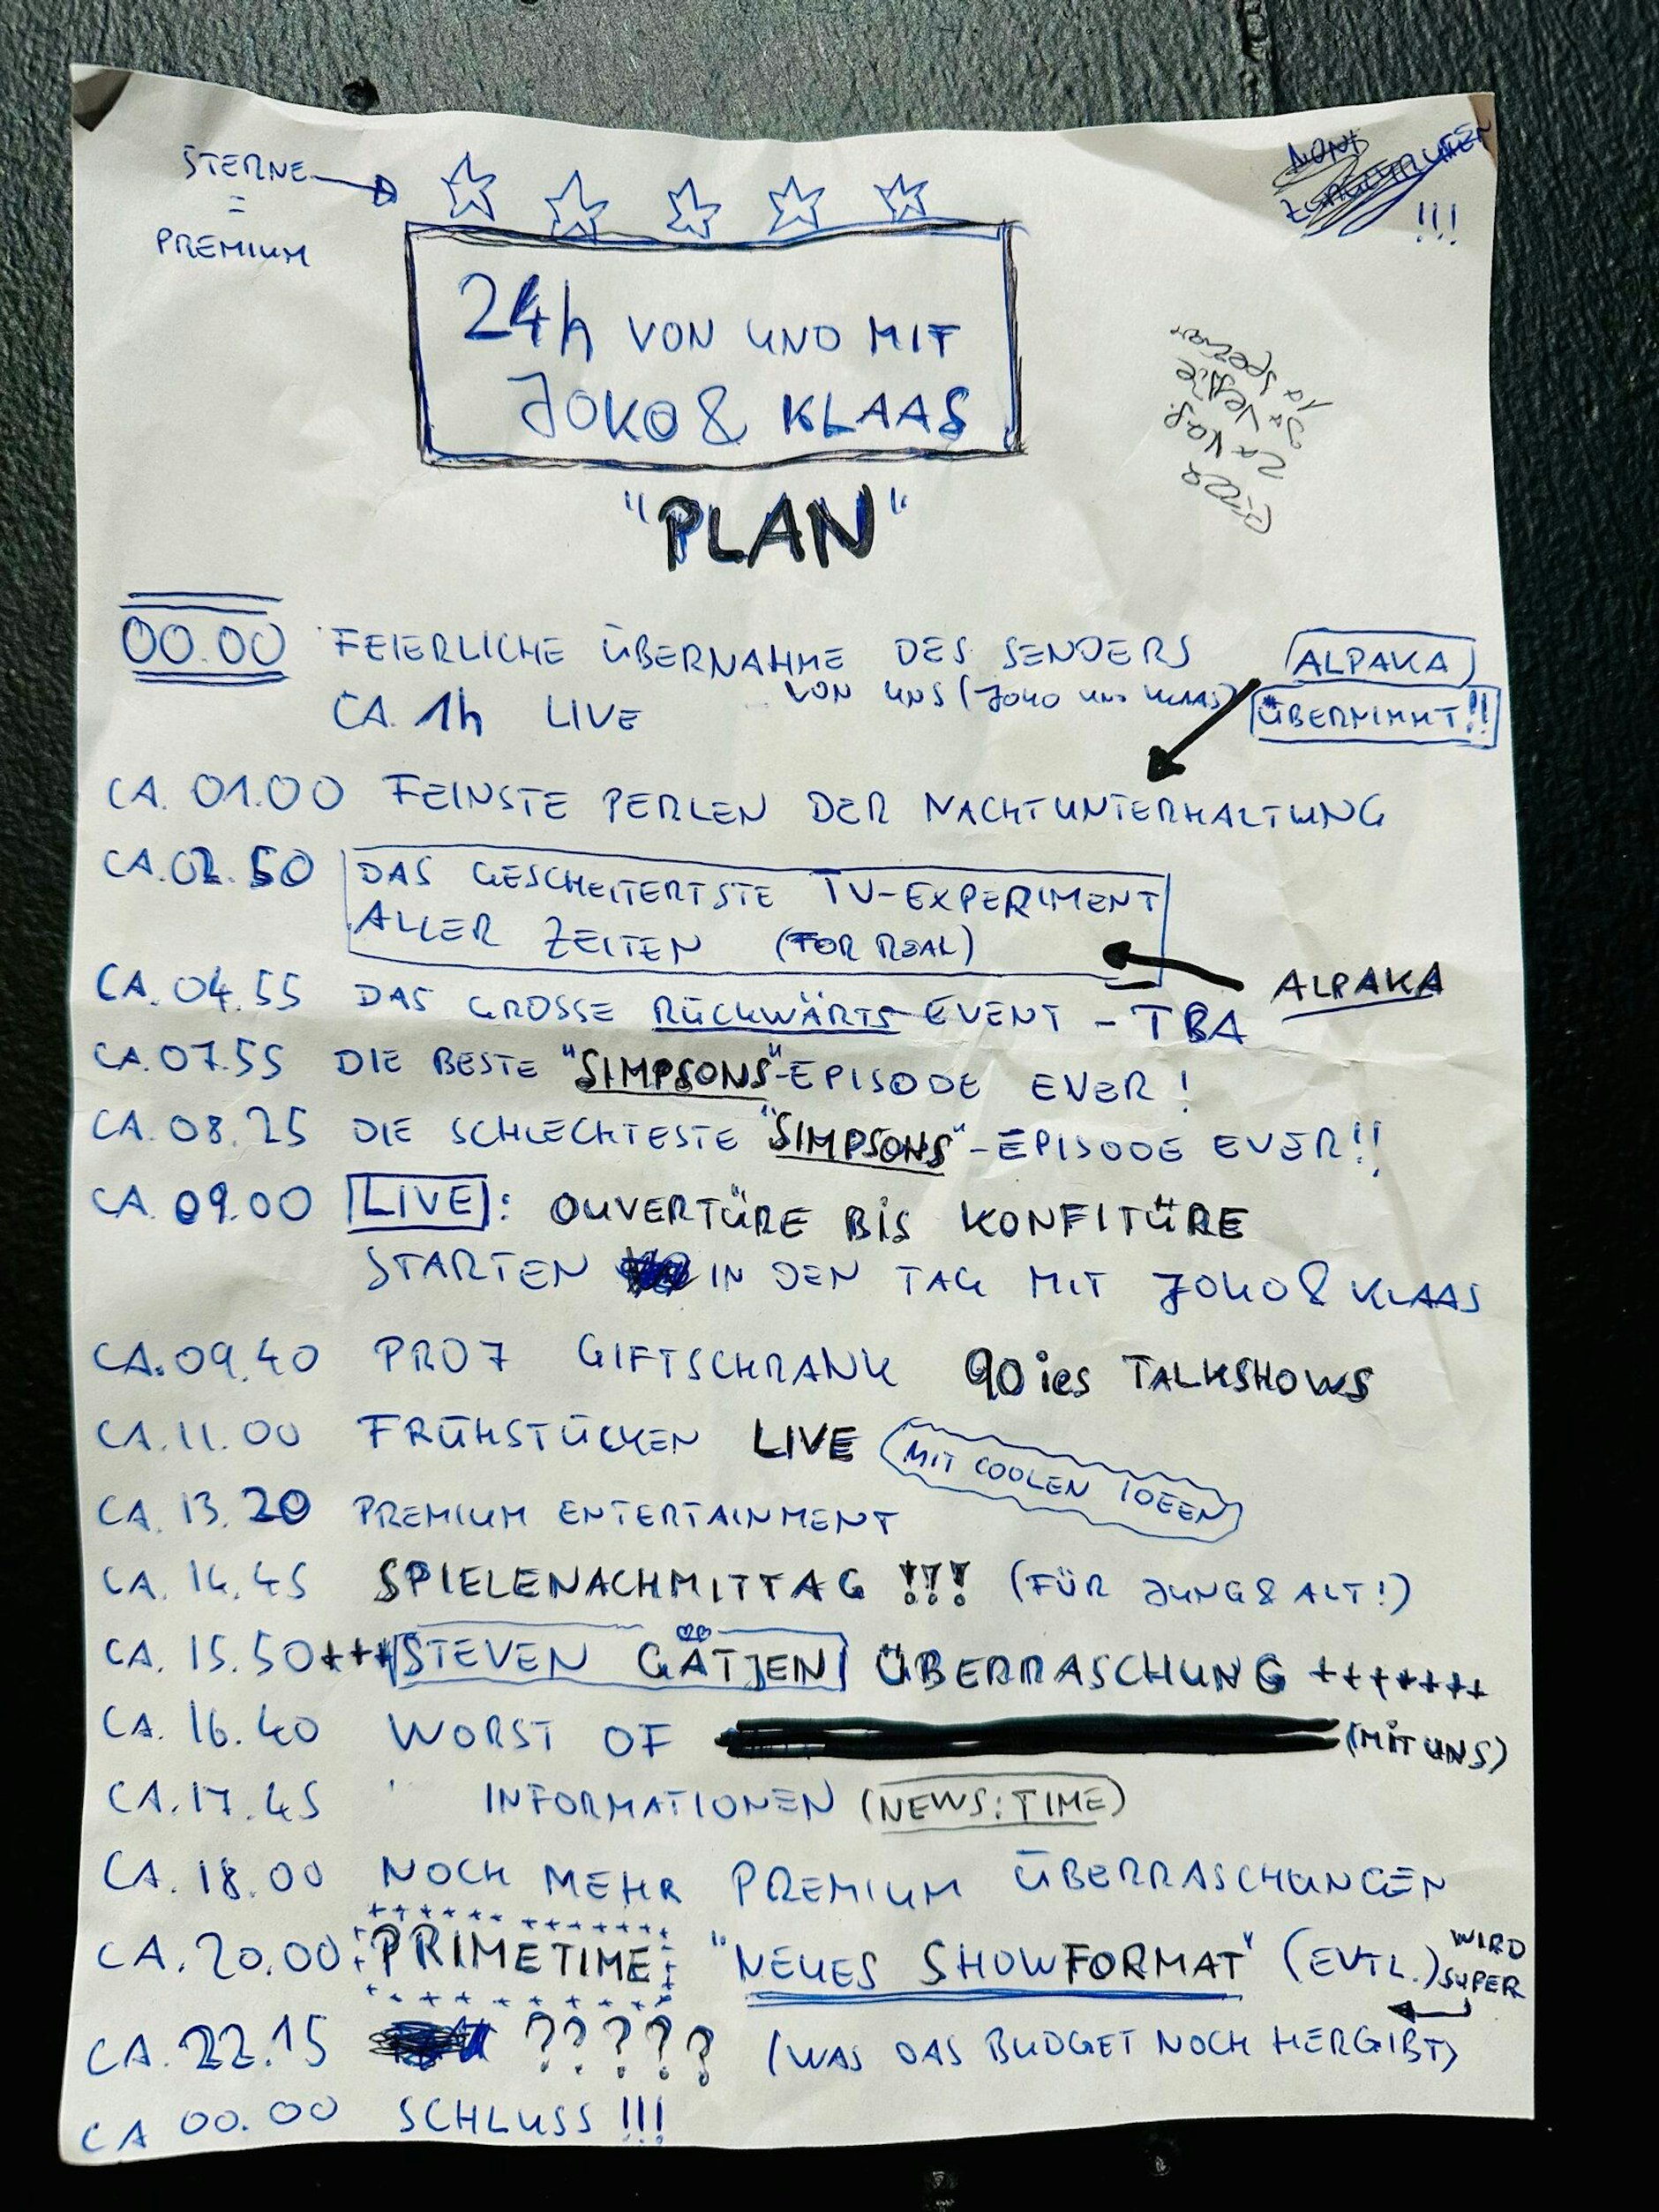 STERNE
=
PREMIUM
!!!
24h VON UND MIT
JOKO & KLAAS
"PLAN"
Pizza
2x Vag.
1x Spezial
00.00 FEIERLICHE ÜBERNAHME DES SENDERS
VON UNS (JOKO UND KLAAS)
CA. 1h LIVE
ALPAKA
ÜBERNIMMT!!
CA. 01.00 FEINSTE PERLEN DER NACHTUNTERHALTUNG
CA. 02.50 DAS GESCHEITERTSTE TV-EXPERIMENT
ALLER ZEITEN (FOR REAL)
ALPAKA
CA. 04.55 DAS GROSSE RÜCKWÄRTS EVENT - TBA
CA. 07.55 DIE BESTE "SIMPSONS"-EPISODE EVER!
CA. 08.25 DIE SCHLECHTESTE "SIMPSONS"-EPISODE EVER!!
CA. 09.00 LIVE: OUVERTÜRE BIS KONFITÜRE
STARTEN IN DEN TAG MIT JOKO & KLAAS
CA. 09.40 PRO7 GIFTSCHRANK 90ies TALKSHOWS
CA. 11.00 FRÜHSTÜCKEN LIVE MIT COOLEN IDEEN
CA. 13.20 PREMIUM ENTERTAINMENT
CA. 14.45 SPIELENACHMITTAG !!! (FÜR JUNG & ALT!)
CA. 15.50 +++ STEVEN GÄTJEN ÜBERRASCHUNG +++++++
CA. 16.40 WORST OF (MIT UNS)
CA. 17.45 INFORMATIONEN (NEWS:TIME)
CA. 18.00 NOCH MEHR PREMIUM ÜBERRASCHUNGEN
CA. 20.00 PRIMETIME "NEUES SHOWFORMAT" (EVTL.) WIRD
SUPER
CA. 22.15 ????? (WAS DAS BUDGET NOCH HERGIBT)
CA 00.00 SCHLUSS !!!